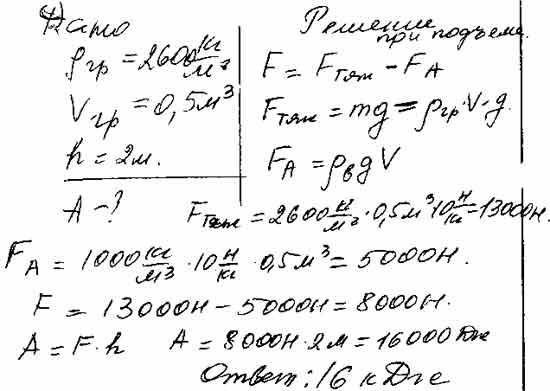 4) Дано
ρгр = 2600 кг/м³
Vгр = 0,5 м³
h = 2 м.
A - ?
Решение
при подъеме
F = Fтяж - FA
Fтяж = mg = ρгр · V · g.
FA = ρв g V
Fтяж = 2600 кг/м³ · 0,5 м³ · 10 Н/кг = 13000 Н.
FA = 1000 кг/м³ · 10 Н/кг · 0,5 м³ = 5000 Н.
F = 13000 Н - 5000 Н = 8000 Н.
A = F · h A = 8000 Н · 2 м = 16000 Дж
Ответ: 16 кДж